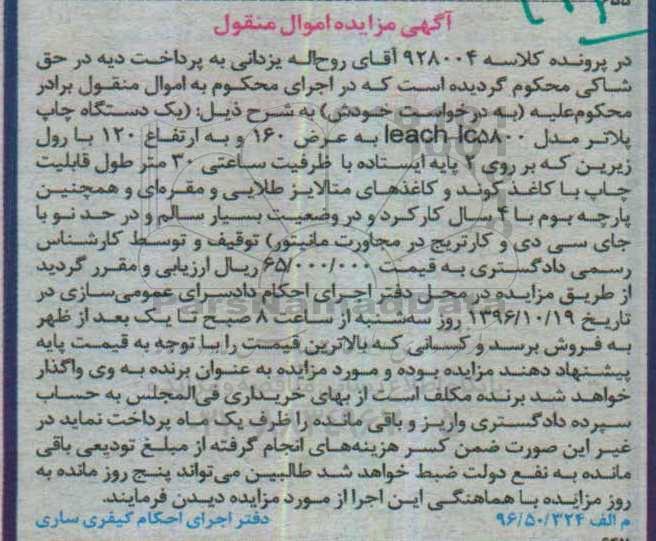 آگهی مزایده اموال منقول
در پرونده کلاسه ۹۲۸۰۰۴ آقای روح‌اله یزدانی به پرداخت دیه در حق
شاکی محکوم گردیده است که در اجرای محکوم به اموال منقول برادر
محکوم‌علیه (به درخواست خودش) به شرح ذیل: (یک دستگاه چاپ
پلاتر مدل leach-lc۵۸۰۰ به عرض ۱۶۰ و به ارتفاع ۱۲۰ با رول
زیرین که بر روی ۲ پایه ایستاده با ظرفیت ساعتی ۳۰ متر طول قابلیت
چاپ با کاغذ کوتد و کاغذهای متالایز طلایی و مقره‌ای و همچنین
پارچه بوم با ۴ سال کارکرد و در وضعیت بسیار سالم و در حد نو با
جای سی دی و کارتریج در مجاورت مانیتور) توقیف و توسط کارشناس
رسمی دادگستری به قیمت ۶۵/۰۰۰/۰۰۰ ریال ارزیابی و مقرر گردید
از طریق مزایده در محل دفتر اجرای احکام دادسرای عمومی‌ساری در
تاریخ ۱۳۹۶/۱۰/۱۹ روز سه‌شنبه از ساعت ۸ صبح تا یک بعد از ظهر
به فروش برسد و کسانی که بالاترین قیمت را با توجه به قیمت پایه
پیشنهاد دهند مزایده بوده و مورد مزایده به عنوان برنده به وی واگذار
خواهد شد برنده مکلف است از بهای خریداری فی‌المجلس به حساب
سپرده دادگستری واریز و باقی مانده را ظرف یک ماه پرداخت نماید در
غیر این صورت ضمن کسر هزینه‌های انجام گرفته از مبلغ تودیعی باقی
مانده به نفع دولت ضبط خواهد شد طالبین می‌تواند پنج روز مانده به
روز مزایده با هماهنگی این اجرا از مورد مزایده دیدن فرمایند.
م الف ۹۶/۵۰/۳۲۴ دفتر اجرای احکام کیفری ساری